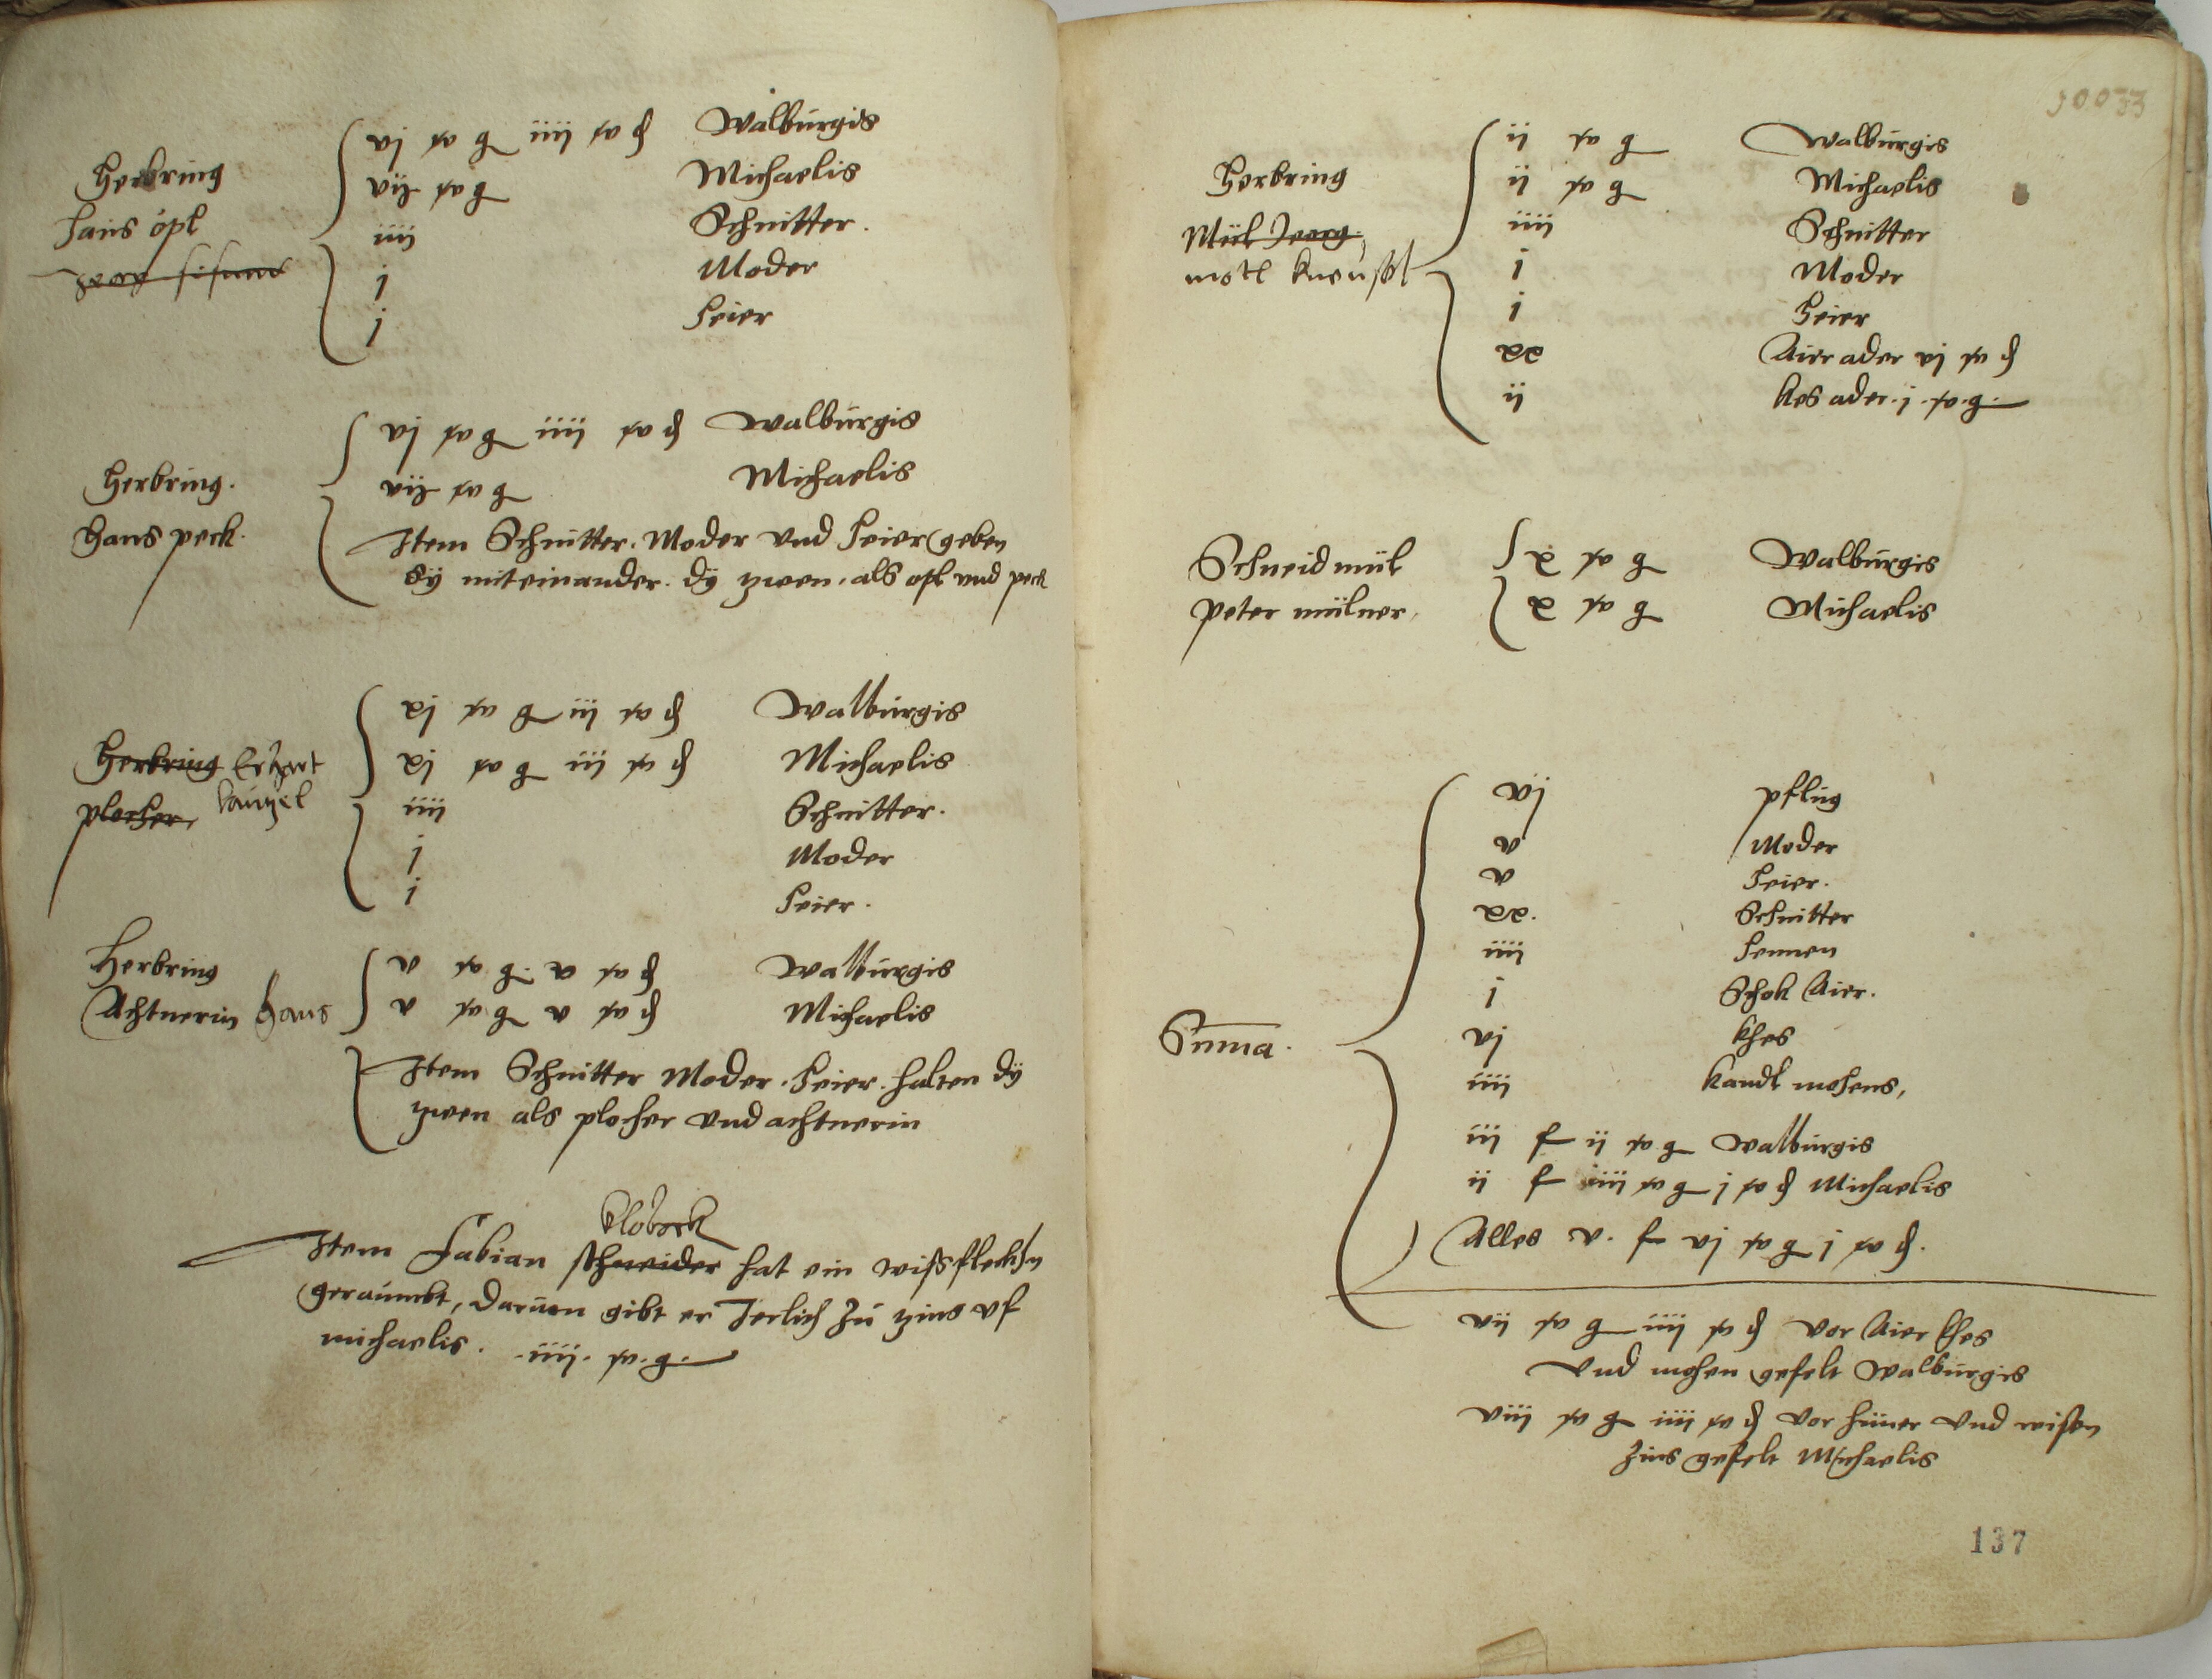 Herbring
Hans öpl
vj sw g iiij sw d Walburgis
vij sw g Michaelis
iiij Schnitter.
j Moder
j Heier
Herbring.
Hans peck.
vj sw g iiij sw d Walburgis
vij sw g Michaelis
Item Schnitter. Moder vnd Heier geben
Sÿ miteinander. dÿ zwen. als opl vnd peck
Herbring Erhart
plocher,
xj sw g iij sw d Walburgis
xj sw g iij sw d Michaelis
iiij Schnitter.
j Moder
j Heier.
Herbring
Achtnerin Hans
v sw g. v sw d Walburgis
v sw g v sw d Michaelis
Item Schnitter Moder. Heier. halten dÿ
zwen als plocher vnd achtnerin
klobeck
Item Fabian schneider hat ein wißfleckhn
geraumbt, daruon gibt er Jerlich zu zins vf
michaelis. .iiij. sw. g.
Herbring
Mül Jeorg.
ij sw g Walburgis
ij sw g Michaelis
iiij Schnitter
j Moder
j Heier
xx Aier ader vj sw d
ij kes ader. j. sw. g.
Schneidmül
peter mülner,
x sw g Walburgis
x sw g Michaelis
Suma.
vj pflug
v Moder
v Heier.
xx. Schnitter
iiij Hennen
j Schok Aier.
vj khes
iiij kandl mohens,
iij f ij sw g Walburgis
ij f iiij sw g j sw d Michaelis
Alles v. f vj sw g j sw d.
vij sw g iiij sw d vor Aier khes
Vnd mohen gefelt Walburgis
viij sw g iiij sw d vor hüner vnd wisen
zins gefelt Michaelis
137